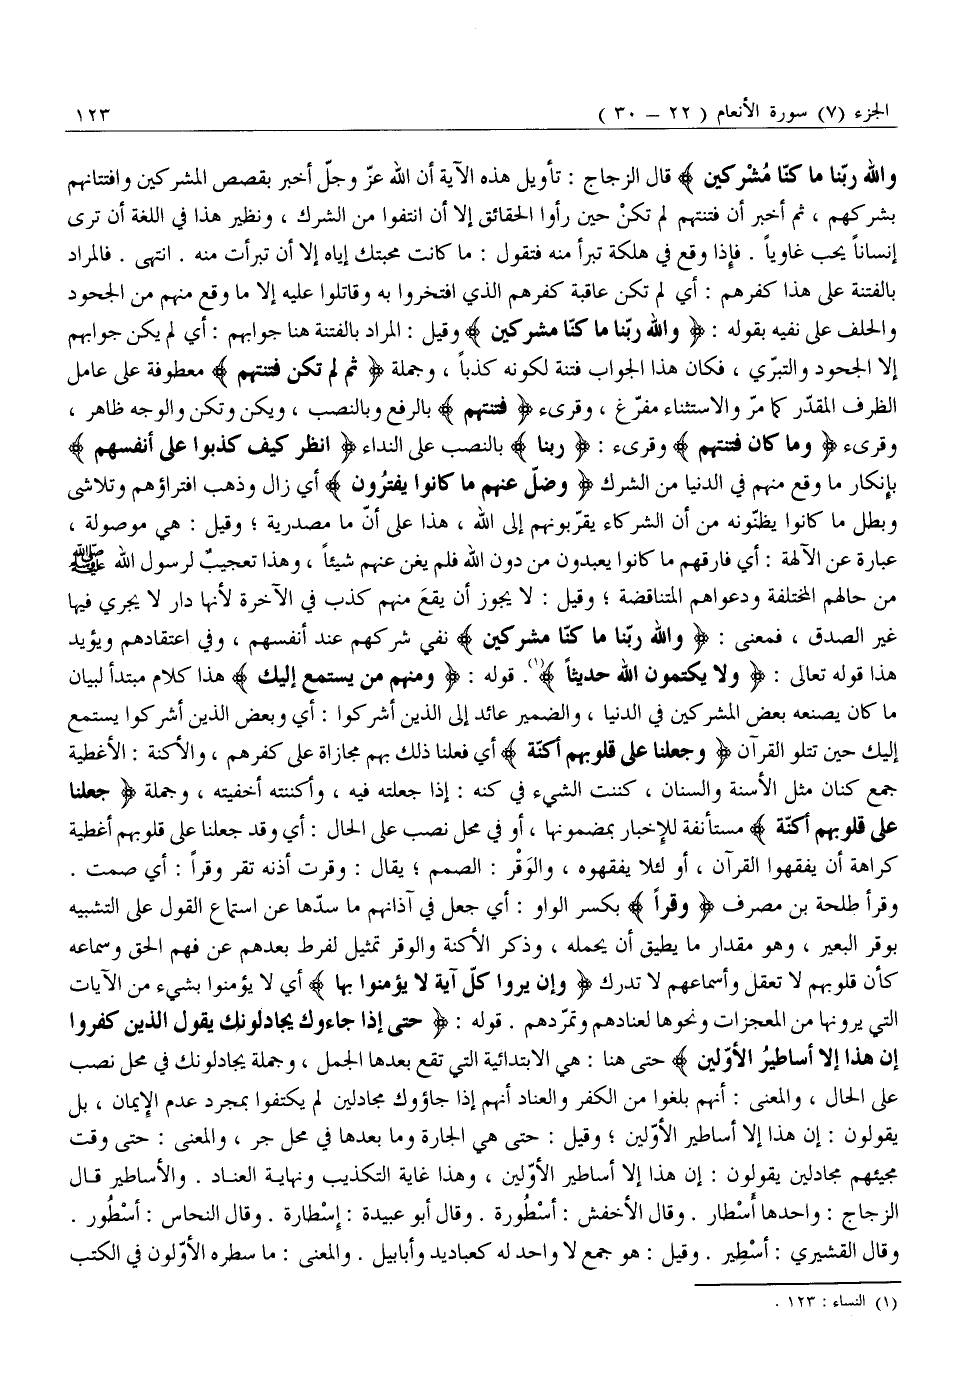 الجزء (٧) سورة الأنعام ( ٢٢ – ٣٠ ) ١٢٣
والله ربّنا ما كنّا مُشْركين ﴾ قال الزجاج : تأويل هذه الآية أن الله عزّ وجلّ أخبر بقصص المشركين وافتتانهم
بشركهم ، ثم أخبر أن فتنتهم لم تكنْ حين رأوا الحقائق إلا أن انتفوا من الشرك ، ونظير هذا في اللغة أن ترى
إنساناً يحب غاوياً . فإذا وقع في هلكة تبرأ منه فتقول : ما كانت محبتك إياه إلا أن تبرأت منه . انتهى . فالمراد
بالفتنة على هذا كفرهم : أي لم تكن عاقبة كفرهم الذي افتخروا به وقاتلوا عليه إلا ما وقع منهم من الجحود
والحلف على نفيه بقوله : ﴿ والله ربّنا ما كنّا مشركين ﴾ وقيل : المراد بالفتنة هنا جوابهم : أي لم يكن جوابهم
إلا الجحود والتبرّي ، فكان هذا الجواب فتنة لكونه كذباً ، وجملة ﴿ ثم لم تكن فتنتهم ﴾ معطوفة على عامل
الظرف المقدّر كما مرّ والاستثناء مفرّغ ، وقرىء ﴿ فتنتهم ﴾ بالرفع وبالنصب ، ويكن وتكن والوجه ظاهر ،
وقرىء ﴿ وما كان فتنتهم ﴾ وقرىء : ﴿ ربنا ﴾ بالنصب على النداء ﴿ انظر كيف كذبوا على أنفسهم ﴾
بإنكار ما وقع منهم في الدنيا من الشرك ﴿ وضلّ عنهم ما كانوا يفترُون ﴾ أي زال وذهب افتراؤهم وتلاشى
وبطل ما كانوا يظنّونه من أن الشركاء يقرّبونهم إلى الله ، هذا على أنّ ما مصدرية ؛ وقيل : هي موصولة ،
عبارة عن الآلهة : أي فارقهم ما كانوا يعبدون من دون الله فلم يغن عنهم شيئاً ، وهذا تعجيبٌ لرسول الله ﷺ
من حالهم المختلفة ودعواهم المتناقضة ؛ وقيل : لا يجوز أن يقعَ منهم كذب في الآخرة لأنها دار لا يجري فيها
غير الصدق ، فمعنى : ﴿ والله ربّنا ما كنّا مشركين ﴾ نفي شركهم عند أنفسهم ، وفي اعتقادهم ويؤيد
هذا قوله تعالى : ﴿ ولا يكتمون الله حديثاً ﴾(١). قوله : ﴿ ومنهم من يستمع إليك ﴾ هذا كلام مبتدأ لبيان
ما كان يصنعه بعض المشركين في الدنيا ، والضمير عائد إلى الذين أشركوا : أي وبعض الذين أشركوا يستمع
إليك حين تتلو القرآن ﴿ وجعلنا على قلوبهم أكنّة ﴾ أي فعلنا ذلك بهم مجازاة على كفرهم ، والأكنة : الأغطية
جمع كنان مثل الأسنة والسنان ، كننت الشيء في كنه : إذا جعلته فيه ، وأكننته أخفيته ، وجملة ﴿ جعلنا
على قلوبهم أكنّة ﴾ مستأنفة للإخبار بمضمونها ، أو في محل نصب على الحال : أي وقد جعلنا على قلوبهم أغطية
كراهة أن يفقهوا القرآن ، أو لئلا يفقهوه ، والوَقْر : الصمم ؛ يقال : وقرت أذنه تقر وقراً : أي صمت .
وقرأ طلحة بن مصرف ﴿ وقراً ﴾ بكسر الواو : أي جعل في آذانهم ما سدّها عن استماع القول على التشبيه
بوقر البعير ، وهو مقدار ما يطيق أن يحمله ، وذكر الأكنة والوقر تمثيل لفرط بعدهم عن فهم الحق وسماعه
كأن قلوبهم لا تعقل وأسماعهم لا تدرك ﴿ وإن يروا كلّ آية لا يؤمنوا بها ﴾ أي لا يؤمنوا بشيء من الآيات
التي يرونها من المعجزات ونحوها لعنادهم وتمرّدهم . قوله : ﴿ حتى إذا جاءوك يجادلونك يقول الذين كفروا
إن هذا إلا أساطيرُ الأوّلين ﴾ حتى هنا : هي الابتدائية التي تقع بعدها الجمل ، وجملة يجادلونك في محل نصب
على الحال ، والمعنى : أنهم بلغوا من الكفر والعناد أنهم إذا جاؤوك مجادلين لم يكتفوا بمجرد عدم الإيمان ، بل
يقولون : إن هذا إلا أساطير الأوّلين ؛ وقيل : حتى هي الجارة وما بعدها في محل جر ، والمعنى : حتى وقت
مجيئهم مجادلين يقولون : إن هذا إلا أساطير الأوّلين ، وهذا غاية التكذيب ونهاية العناد . والأساطير قال
الزجاج : واحدها أَسْطار . وقال الأخفش : أسْطُورة . وقال أبو عبيدة : إسْطارة . وقال النحاس : أسْطُور .
وقال القشيري : أسْطِير . وقيل : هو جمع لا واحد له كعباديد وأبابيل . والمعنى : ما سطره الأوّلون في الكتب
(١) النساء : ١٢٣ .